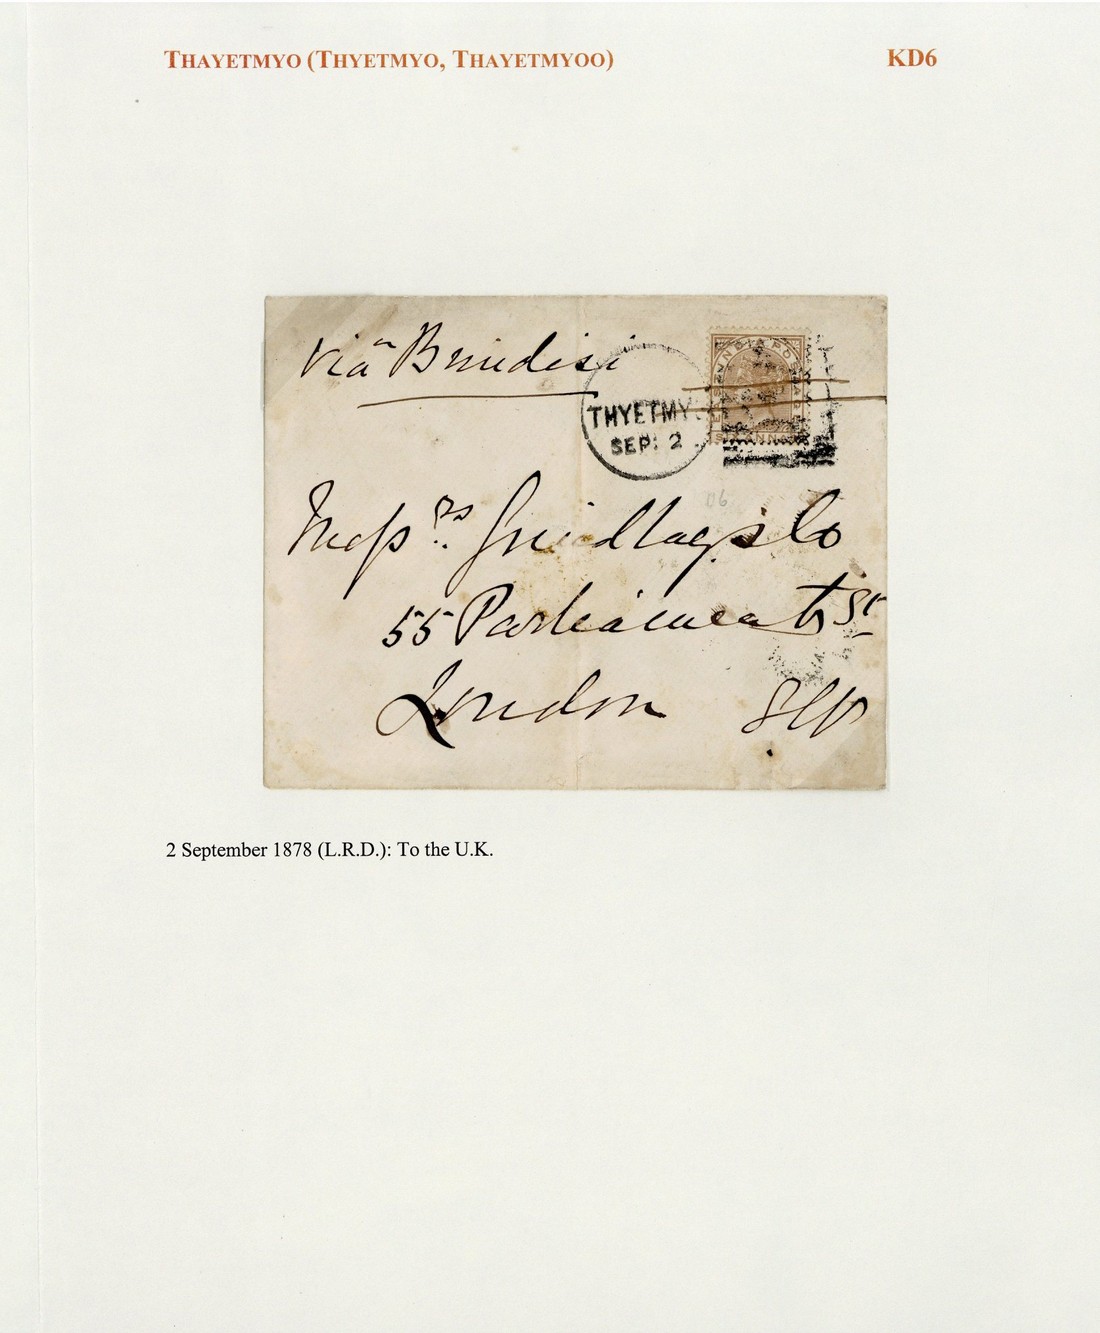 THAYETMYO (THYETMYO, THAYETMYOO) KD6
viâ Brindisi
THYETMY
SEP: 2
INDIA POSTAGE
SIX ANNAS
Messrs. Grindlay & Co
55 Parliament St
London SW
2 September 1878 (L.R.D.): To the U.K.